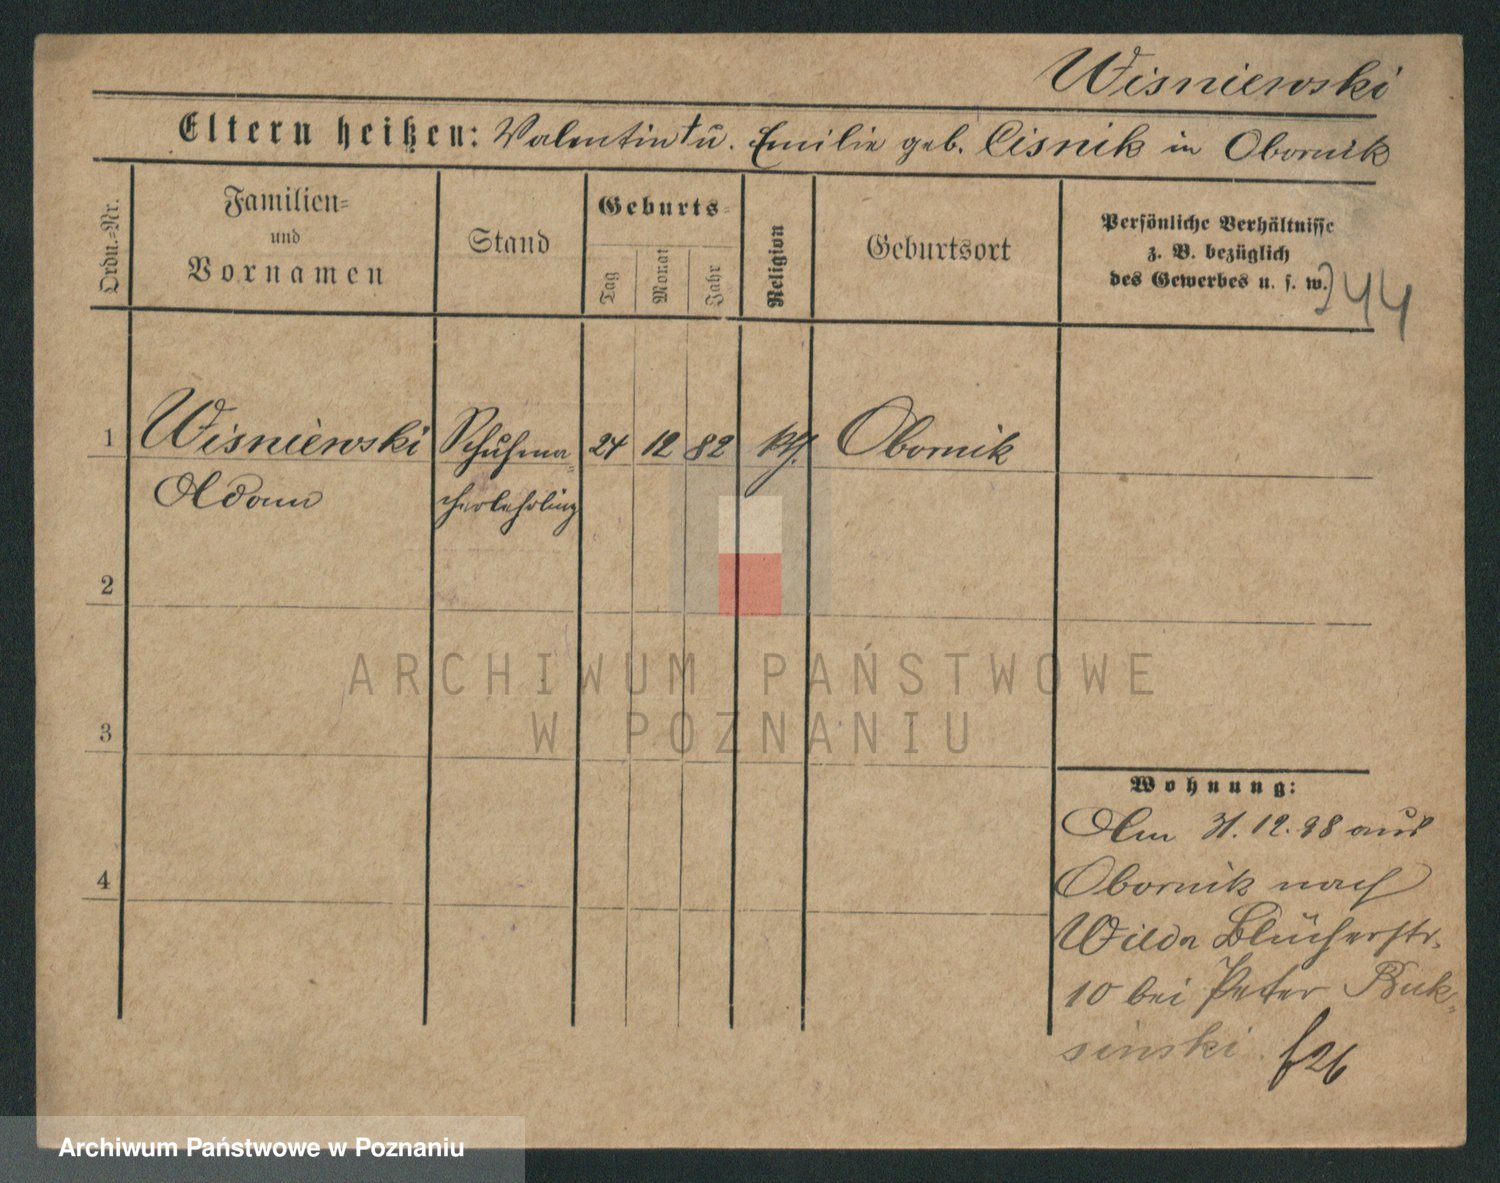 Wisniewski
Eltern heißen: Valentin † u. Emilie geb. Cisnik in Obornik
Ordn.-Nr.
Familien-
und
Vornamen
Stand
Geburts-
Tag
Monat
Jahr
Religion
Geburtsort
Persönliche Verhältnisse
z. B. bezüglich
des Gewerbes u. s. w.
44
1
Wisniewski Schuhma- 24 12 82 kth. Obornik
Adam cherlehrling
2
ARCHIWUM PAŃSTWOWE
W POZNANIU
3
Wohnung:
Am 31.12.98 aus
4
Obornik nach
Wilda Blücherstr.
10 bei Peter Buk-
sinski. f26
Archiwum Państwowe w Poznaniu